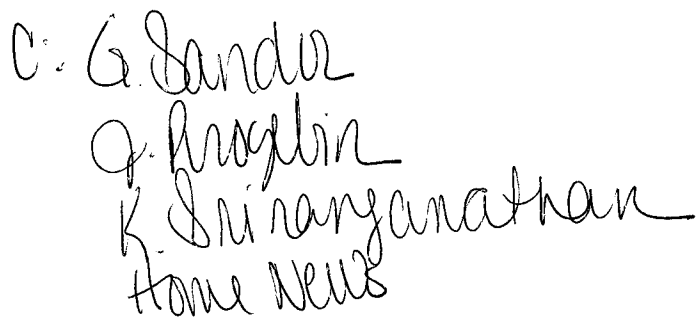 C: G. Sandor
J. Progebin
K. Sriranganathan
Home News